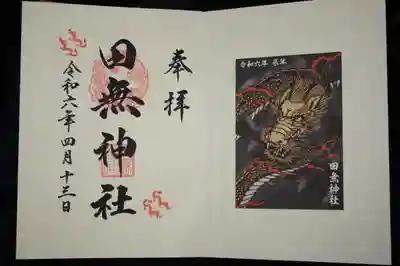 奉拝
田無神社
令和六年四月十三日
令和六年 辰年
田無神社